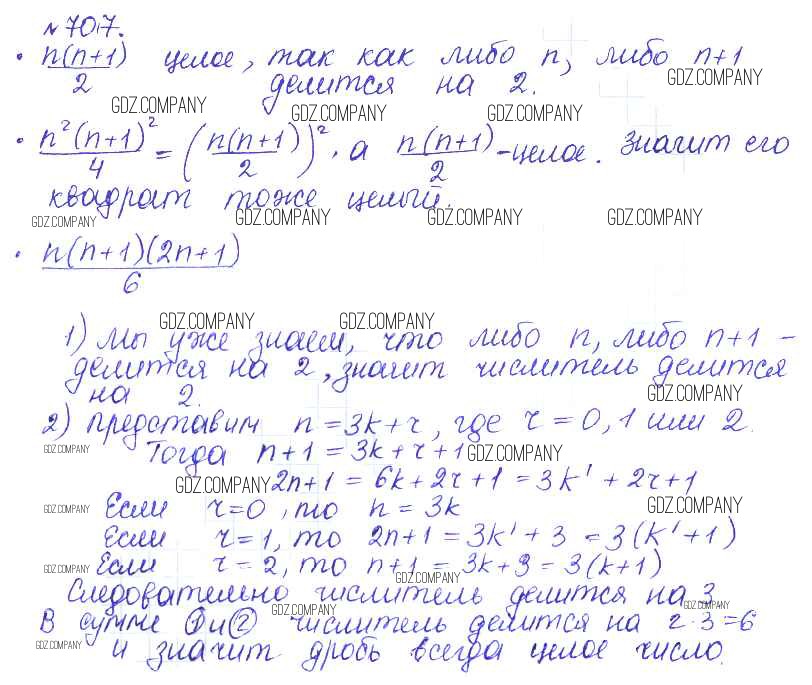 № 707.
• n(n+1)/2 целое, так как либо n, либо n+1
делится на 2.
GDZ.COMPANY
GDZ.COMPANY GDZ.COMPANY GDZ.COMPANY
• n²(n+1)²/4 = (n(n+1)/2)², а n(n+1)/2 - целое. Значит его
квадрат тоже целый.
GDZ.COMPANY GDZ.COMPANY GDZ.COMPANY GDZ.COMPANY
• n(n+1)(2n+1)/6
GDZ.COMPANY GDZ.COMPANY
1) Мы уже знаем, что либо n, либо n+1 -
делится на 2, значит числитель делится
на 2.
GDZ.COMPANY
2) Представим n = 3k + r, где r = 0, 1 или 2.
GDZ.COMPANY Тогда n+1 = 3k + r + 1 GDZ.COMPANY
GDZ.COMPANY 2n+1 = 6k + 2r + 1 = 3k' + 2r + 1
GDZ.COMPANY Если r=0, то n = 3k GDZ.COMPANY
Если r=1, то 2n+1 = 3k' + 3 = 3(k'+1)
GDZ.COMPANY Если r=2, то n+1 = 3k+3 = 3(k+1)
GDZ.COMPANY
Следовательно числитель делится на 3
GDZ.COMPANY GDZ.COMPANY
В сумме ① и ② числитель делится на 2·3=6
GDZ.COMPANY и значит дробь всегда целое число.